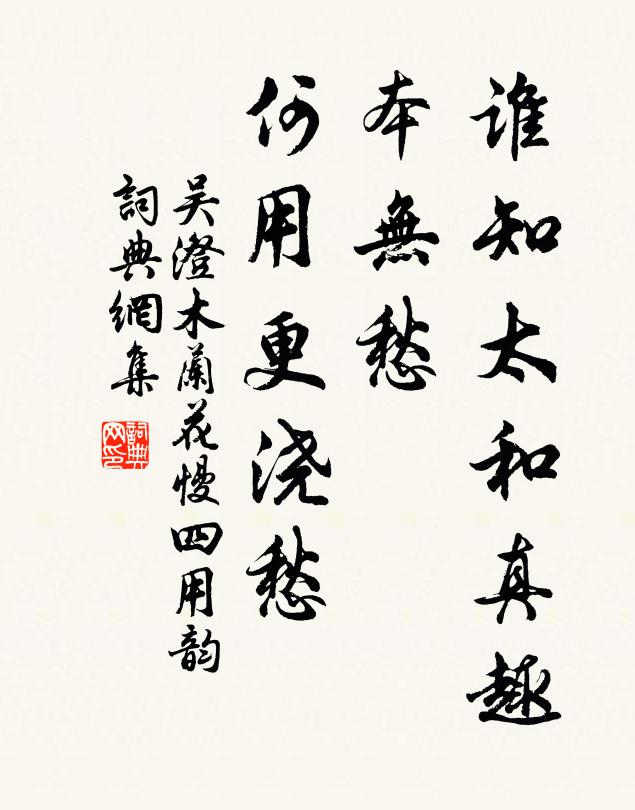 谁知太和真趣
本無愁
何用更浇愁
吴澄木蘭花慢四用韵
詞典網集
詞典网印